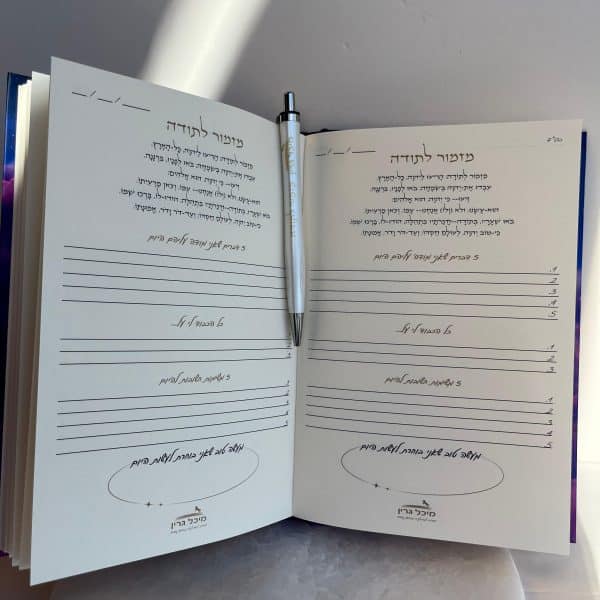 בס"ד
__/__/____
מזמור לתודה
מזמור לתודה הריעו לידוה, כל-הארץ.
עבדו את-ידוה בשמחה; באו לפניו, ברננה.
דעו-- כי ידוה, הוא אלהים:
הוא-עשנו, ולא ולו אנחנו-- עמו, וצאן מרעיתו.
באו שעריו, בתודה--חצרתיו בתהלה; הודו-לו, ברכו שמו.
כי-טוב ידוה, לעולם חסדו; ועד-דר ודר, אמונתו.
5 דברים שאני מודה עליהם היום
.1
2
3
.4
.5
כל הכבוד לי על...
.1
2
3
5 משימות חשובות להיום
.1
2
3
4
5
מעשה טוב שאני בוחרת לעשות היום
מיכל גרין
__/__/____
מזמור לתודה
מזמור לתודה הריעו לידוה, כל-הארץ.
עבדו את-ידוה בשמחה; באו לפניו, ברננה.
דעו-- כי ידוה, הוא אלהים:
הוא-עשנו, ולא ולו אנחנו-- עמו, וצאן מרעיתו.
באו שעריו, בתודה--חצרתיו בתהלה; הודו-לו, ברכו שמו.
כי-טוב ידוה, לעולם חסדו; ועד-דר ודר, אמונתו.
5 דברים שאני מודה עליהם היום
כל הכבוד לי על...
5 משימות חשובות להיום
מעשה טוב שאני בוחרת לעשות היום
מיכל גרין